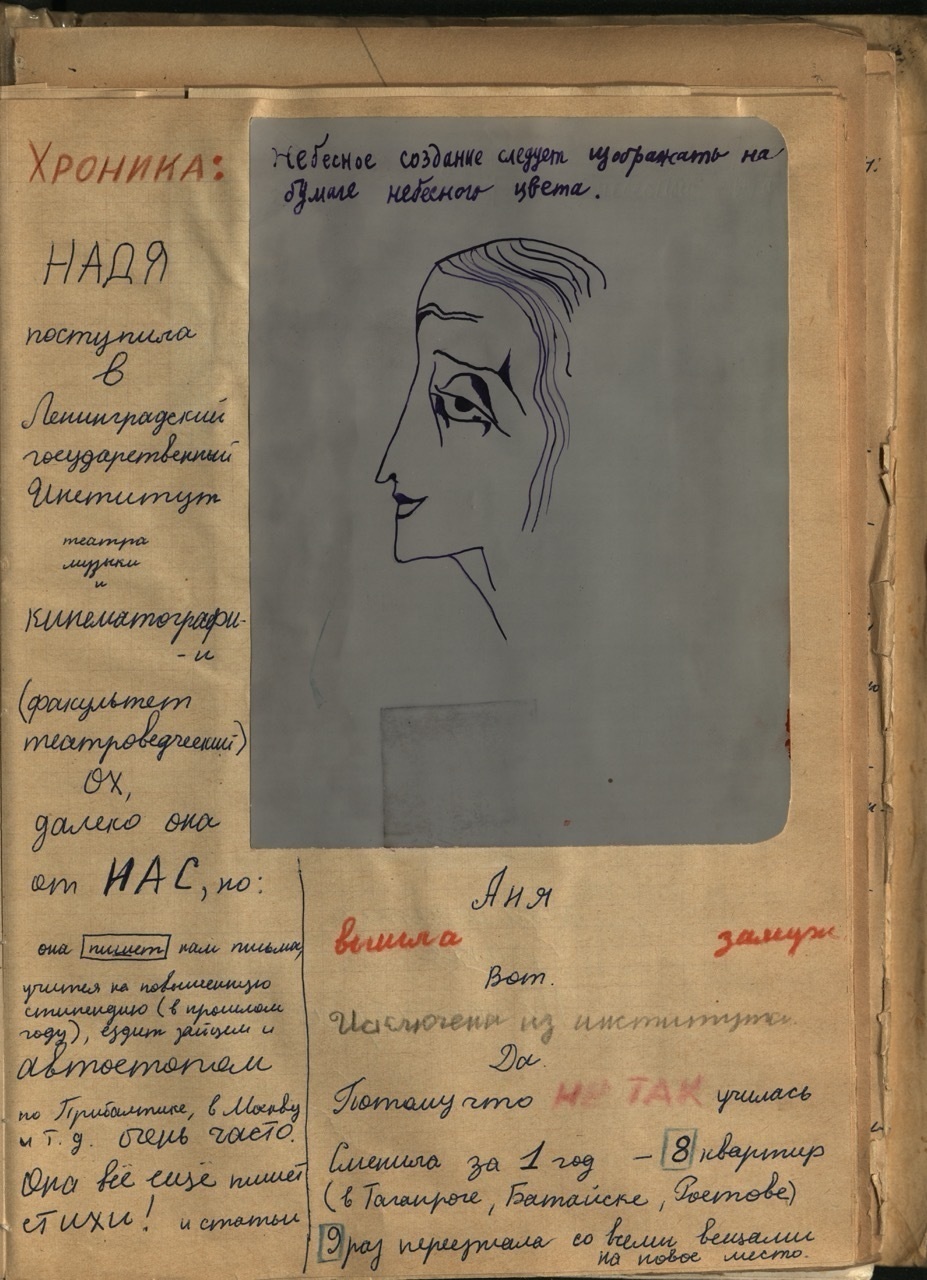 ХРОНИКА:
НАДЯ
поступила
в
Ленинградский
государственный
Институт
театра
музыки
и
кинематографи-
-и
(факультет
театроведческий)
ОХ,
далеко она
от НАС, но:
она пишет нам письма,
учится на повышенную
стипендию (в прошлом
году), ездит зайцем и
автостопом
по Прибалтике, в Москву
и т.д. очень часто.
Она всё ещё пишет
СТИХИ! и статьи
Небесное создание следует изображать на
бумаге небесного цвета.
Аня
вышла замуж
Вот.
Исключена из института.
Да.
Потому что НЕ ТАК училась
Сменила за 1 год – 8 квартир
(в Таганроге, Батайске, Ростове)
9 раз переезжала со всеми вещами
на новое место.